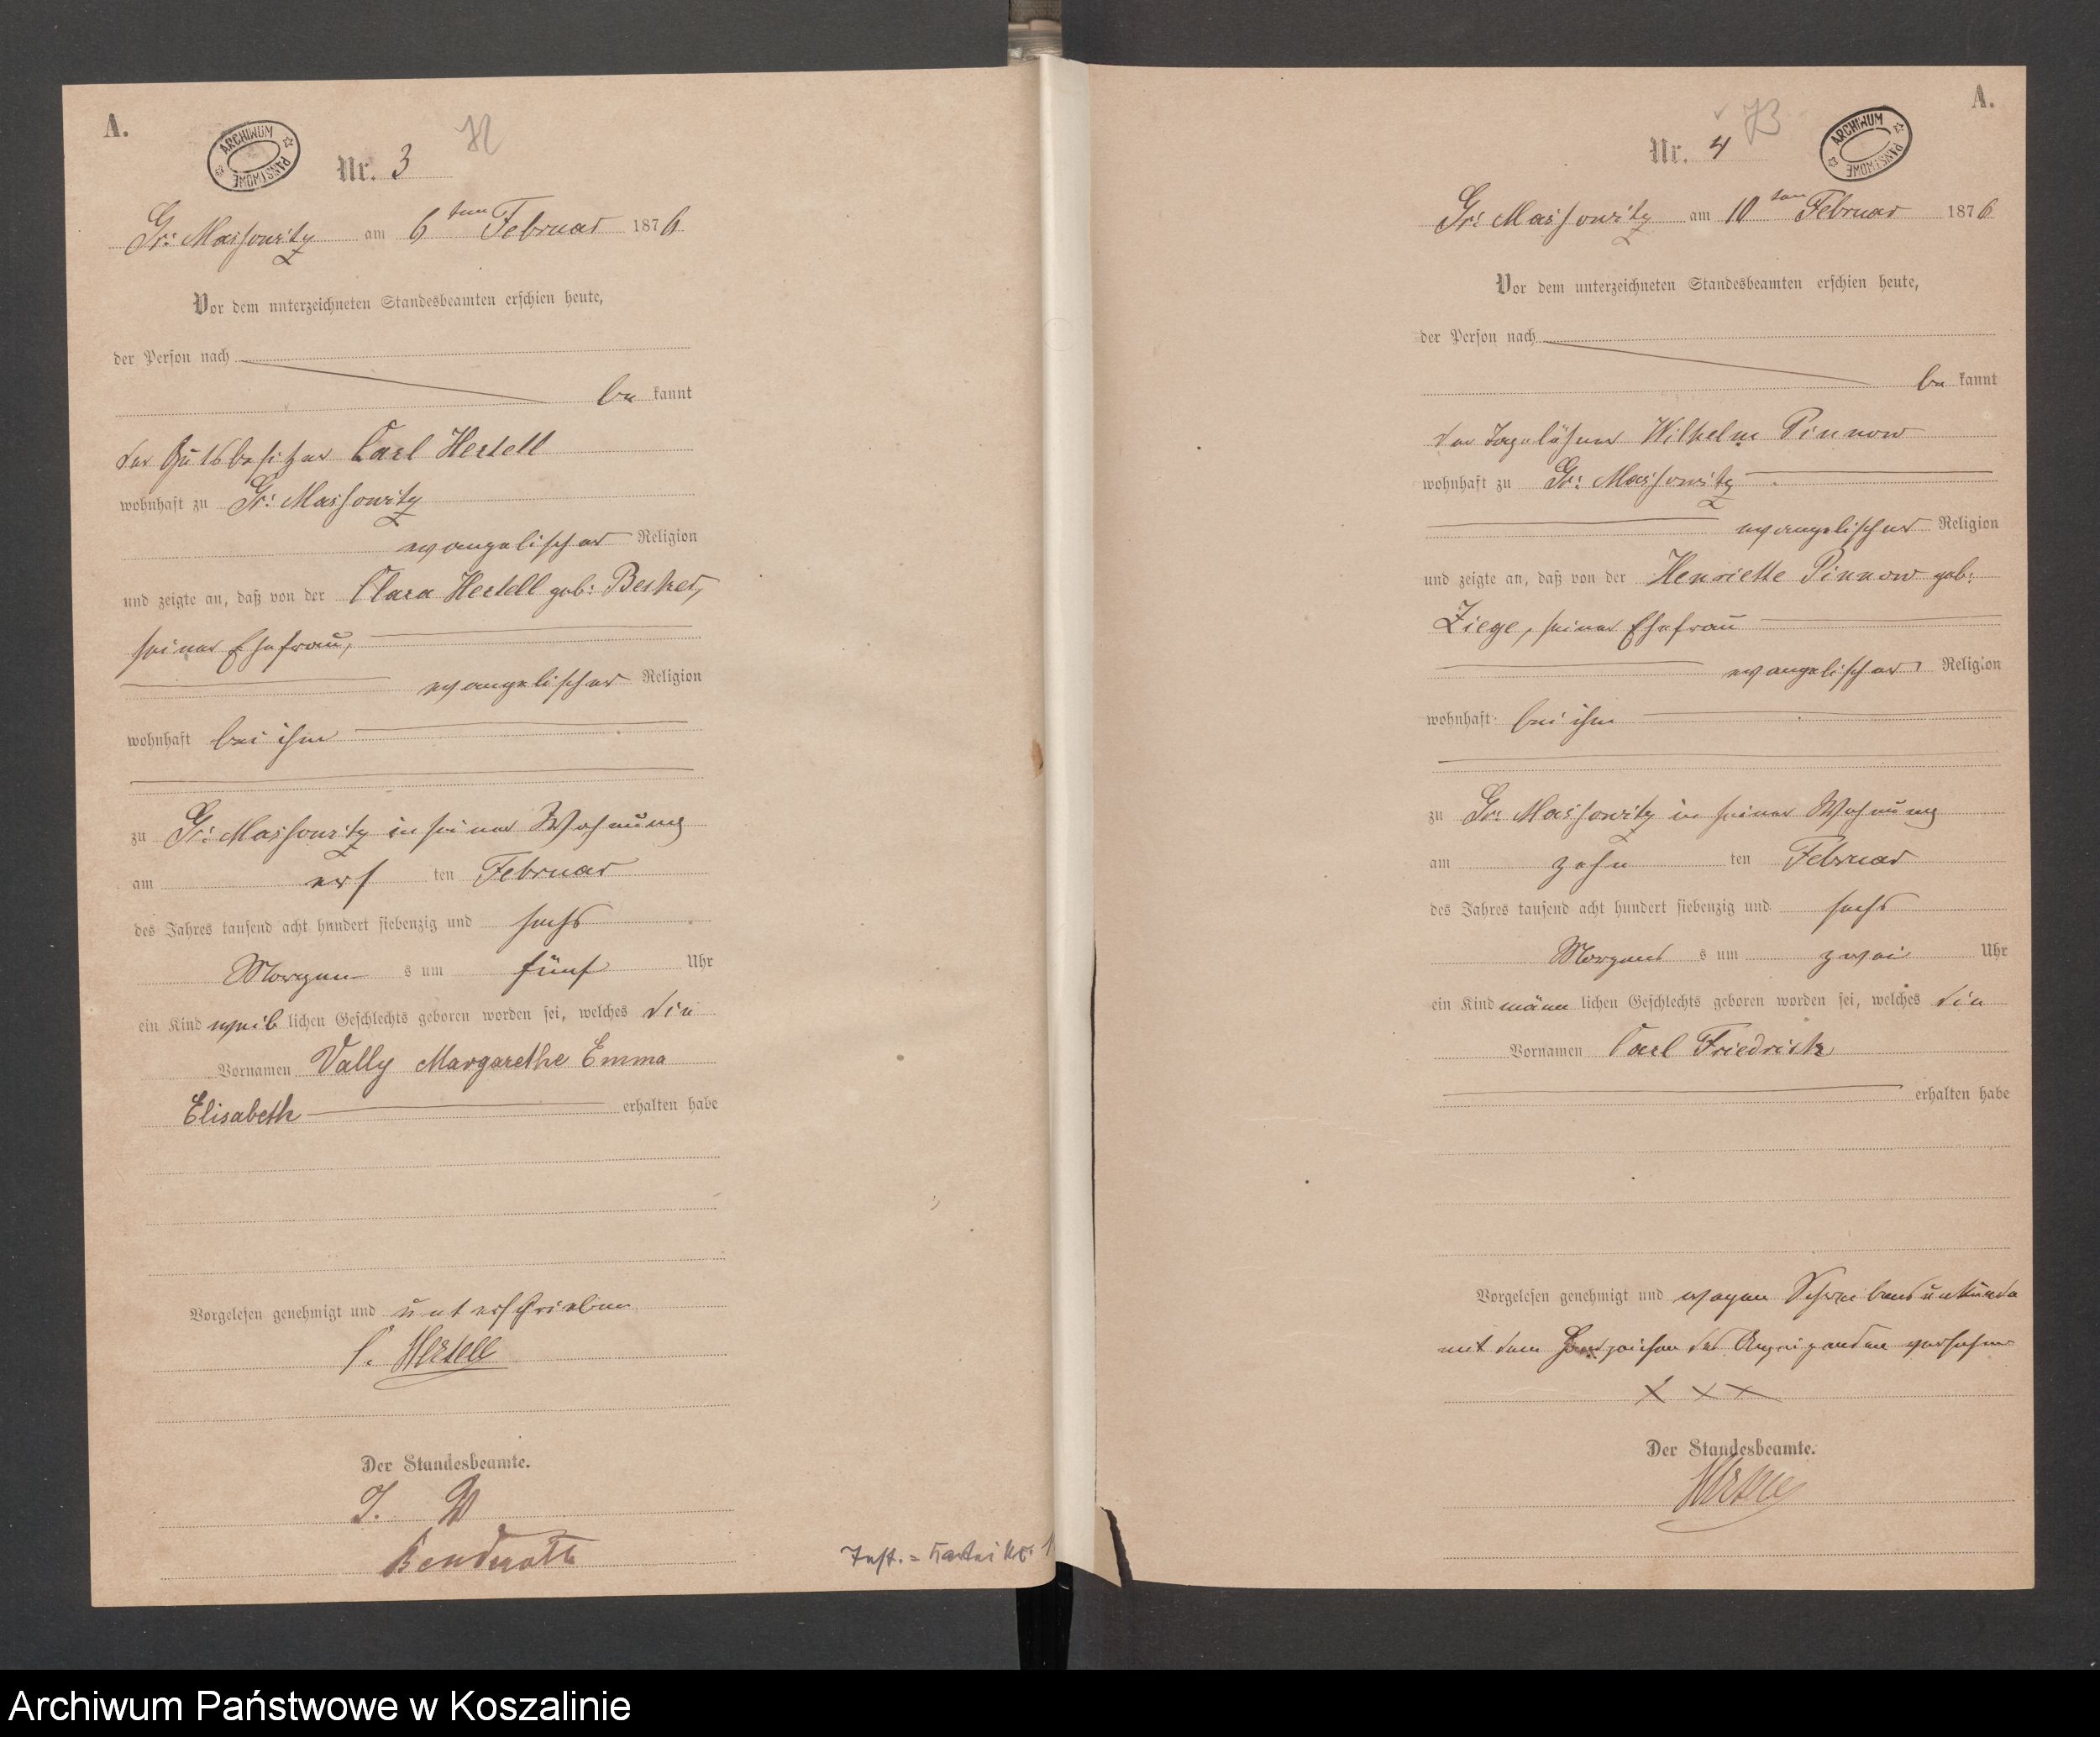 A.
ARCHIWUM PAŃSTWOWE
Nr. 3
Gr: Massowitz am 6ten Februar 1876
Vor dem unterzeichneten Standesbeamten erschien heute,
der Person nach
be kannt
der Gutsbesitzer Carl Hertell
wohnhaft zu Gr: Massowitz
evangelischer Religion
und zeigte an, daß von der Clara Hertell geb: Becker,
seiner Ehefrau,
evangelischer Religion
wohnhaft bei ihm
zu Gr: Massowitz in seiner Wohnung
am ersten Februar
des Jahres tausend acht hundert siebenzig und sechs
Morgen s um fünf Uhr
ein Kind weiblichen Geschlechts geboren worden sei, welches die
Vornamen Vally Margarethe Emma
Elisabeth erhalten habe
Vorgelesen genehmigt und unterschrieben
C. Hertell
Der Standesbeamte.
I. V
A.
ARCHIWUM PAŃSTWOWE
Nr. 4
Gr: Massowitz am 10ten Februar 1876
Vor dem unterzeichneten Standesbeamten erschien heute,
der Person nach
be kannt
der Tagelöhner Wilhelm Pinnow
wohnhaft zu Gr: Massowitz
evangelischer Religion
und zeigte an, daß von der Henriette Pinnow geb:
Ziege, seiner Ehefrau
evangelischer Religion
wohnhaft bei ihm
zu Gr: Massowitz in seiner Wohnung
am zehn ten Februar
des Jahres tausend acht hundert siebenzig und sechs
Morgens s um zwei Uhr
ein Kind männlichen Geschlechts geboren worden sei, welches die
Vornamen Carl Friedrich
erhalten habe
Vorgelesen genehmigt und wegen Schreibensunkunde
mit dem Handzeichen des Anzeigenden versehen
X X X
Der Standesbeamte.
Hertell
Archiwum Państwowe w Koszalinie